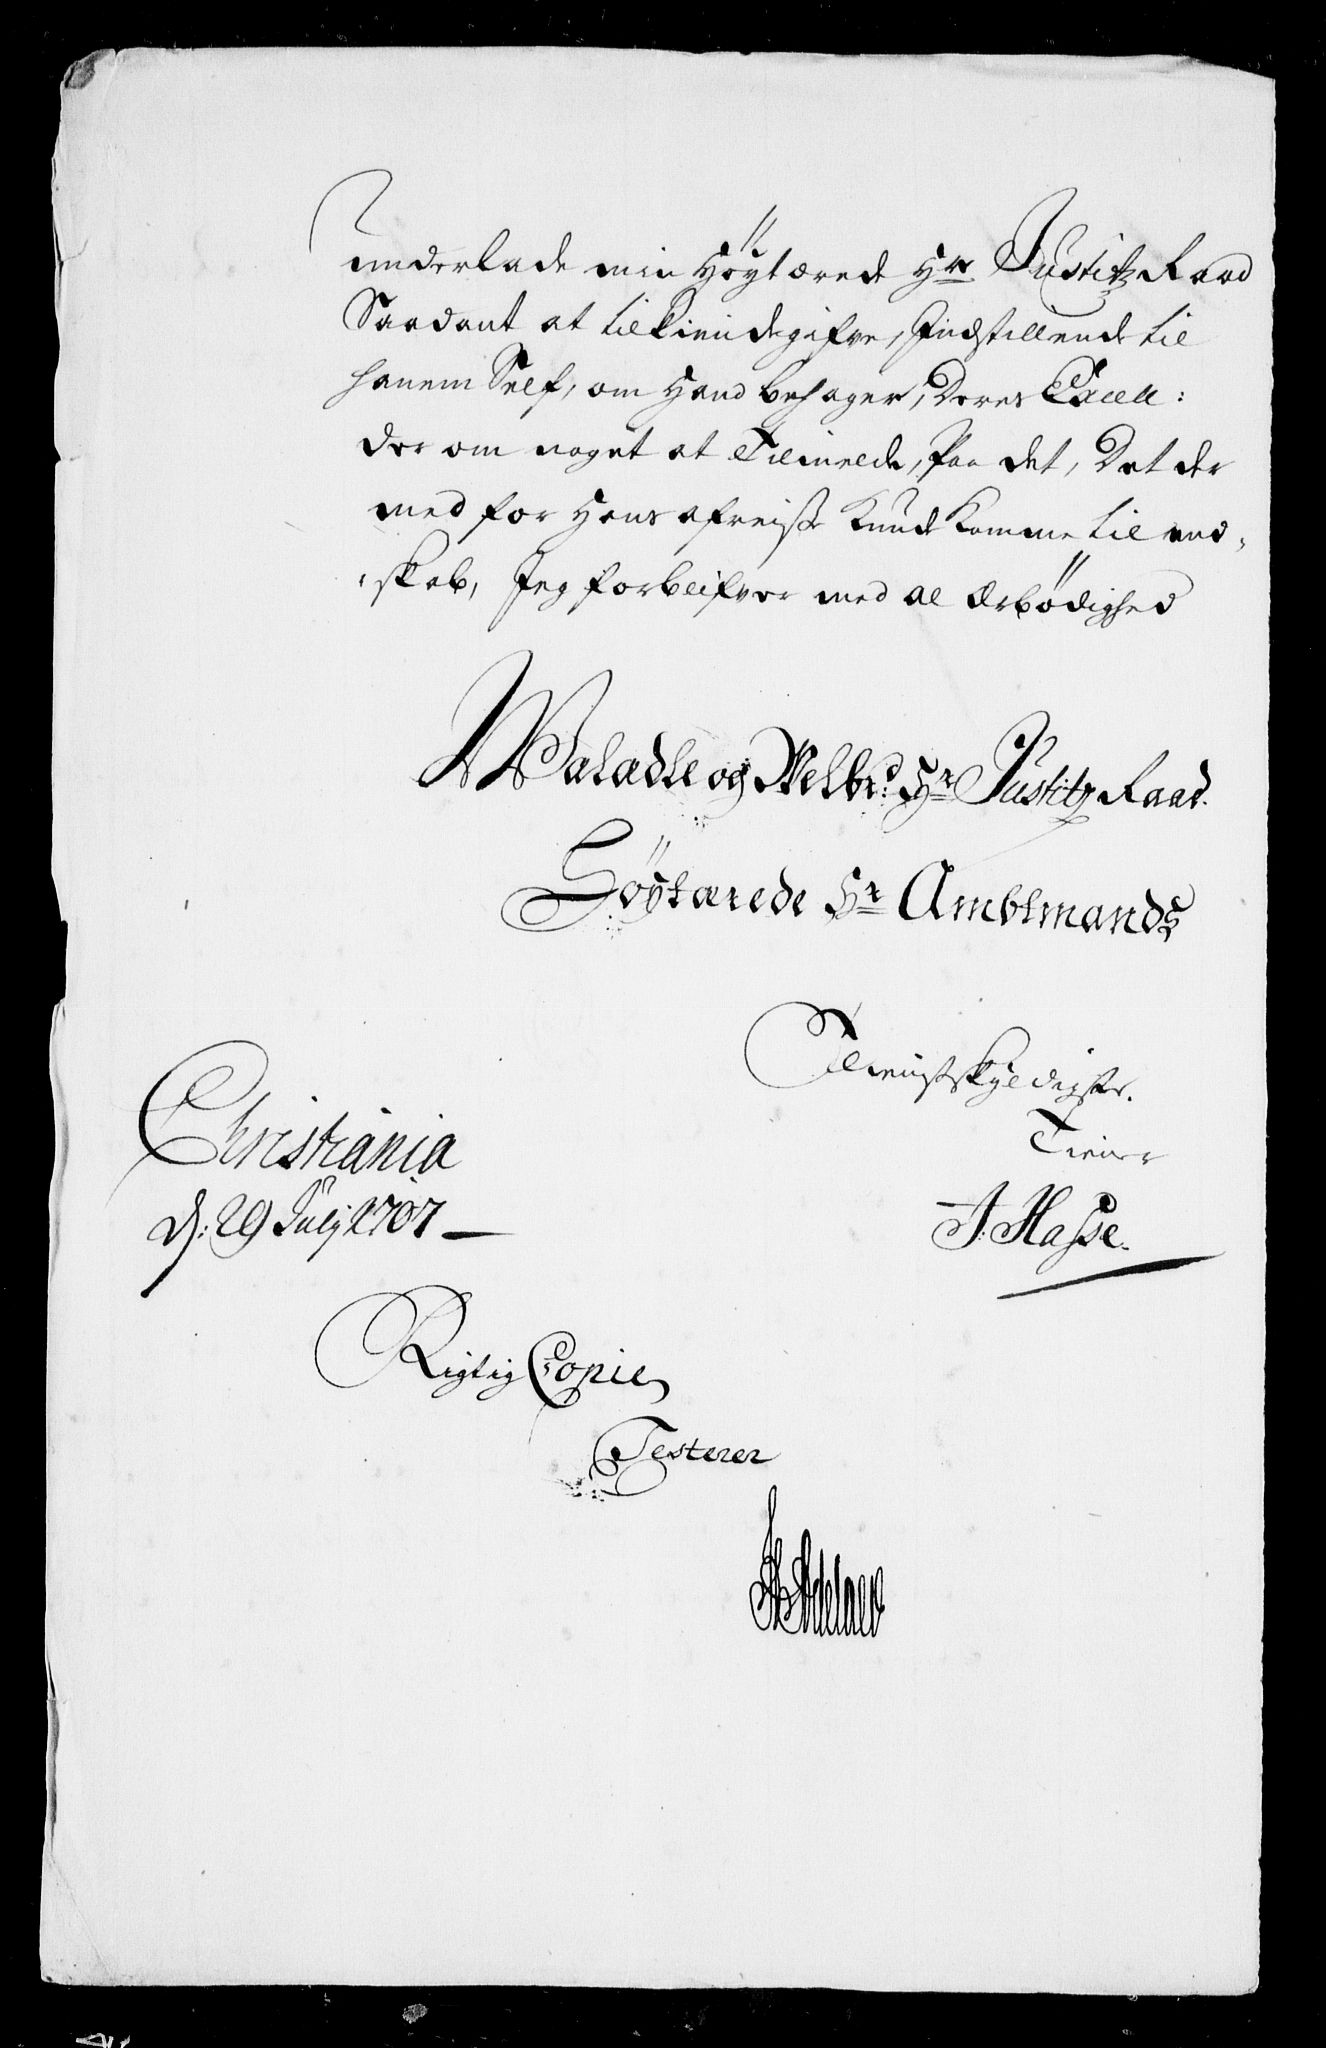 underlade min Høytærede Hr Justitz Raad
Saadant at tilkiendegifve, Indstillende til
hanem Self, om Hand behager, Deres Excell:
der om noget at Tilmelde, Paa det, Det der
med for Hans afreise kunde komme til end-
skab, Jeg forblifver med al ærbødighed
Welædle og Welbr:d Hr Justitz Raad.
Høytærede Hr Ambtmands
Tienistskyldigste.
Tiener
J: Hasse.
Christiania
d: 29 July 1707
Rigtig Copie
Testerer
Adelaer